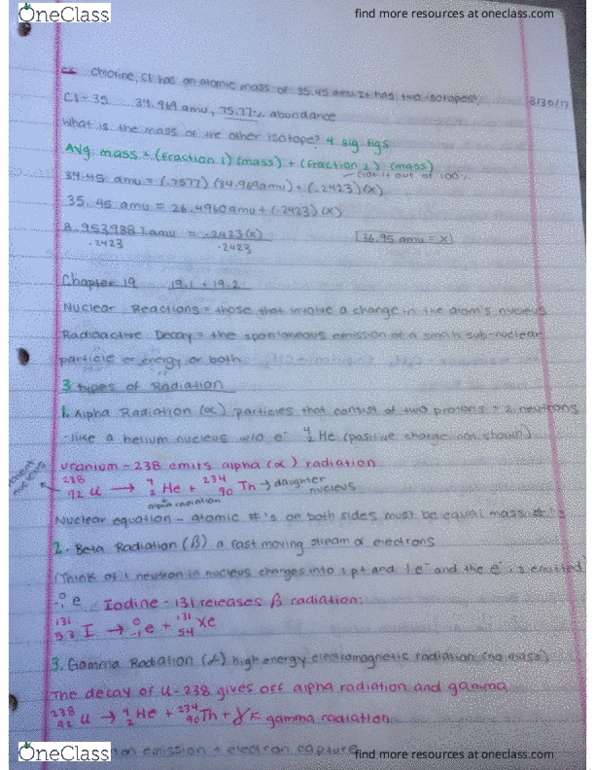 OneClass
find more resources at oneclass.com
ex Chlorine, Cl has an atomic mass of 35.45 amu. It has two isotopes.
8/30/17
Cl-35 34.969 amu, 75.77% abundance
What is the mass of the other isotope? 4 sig figs
Avg. mass = (Fraction 1)(mass) + (Fraction 2)(mass)
out of 100%
34.45 amu = (.7577)(34.969amu) + (.2423)(x)
35.45 amu = 26.4960amu + (.2423)(x)
8.9539887amu = .2423(x)
.2423 .2423
36.95 amu = x
Chapter 19 19.1 + 19.2
Nuclear Reactions = those that involve a change in the atom's nucleus
Radioactive Decay = the spontaneous emission of a small sub-nuclear
particle or energy or both
3 types of Radiation
1. Alpha Radiation (α) particles that consist of two protons + 2 neutrons
-like a helium nucleus w/o e⁻ ⁴₂He (positive charge not shown)
Uranium-238 emits alpha (α) radiation
parent nucleus
²³⁸₉₂U → ⁴₂He + ²³⁴₉₀Th → daughter nucleus
alpha radiation
Nuclear equation - atomic #'s on both sides must be equal mass #'s
2. Beta Radiation (β) a fast moving stream of electrons
(Think of 1 neutron in nucleus changes into 1 p+ and 1 e⁻ and the e⁻ is emitted)
⁰₋₁e Iodine-131 releases β radiation:
¹³¹₅₃I → ⁰₋₁e + ¹³¹₅₄Xe
3. Gamma Radiation high energy electromagnetic radiation (no mass)
The decay of U-238 gives off alpha radiation and gamma
²³⁸₉₂U → ⁴₂He + ²³⁴₉₀Th + γ gamma radiation
emission + electron capture
OneClass
find more resources at oneclass.com